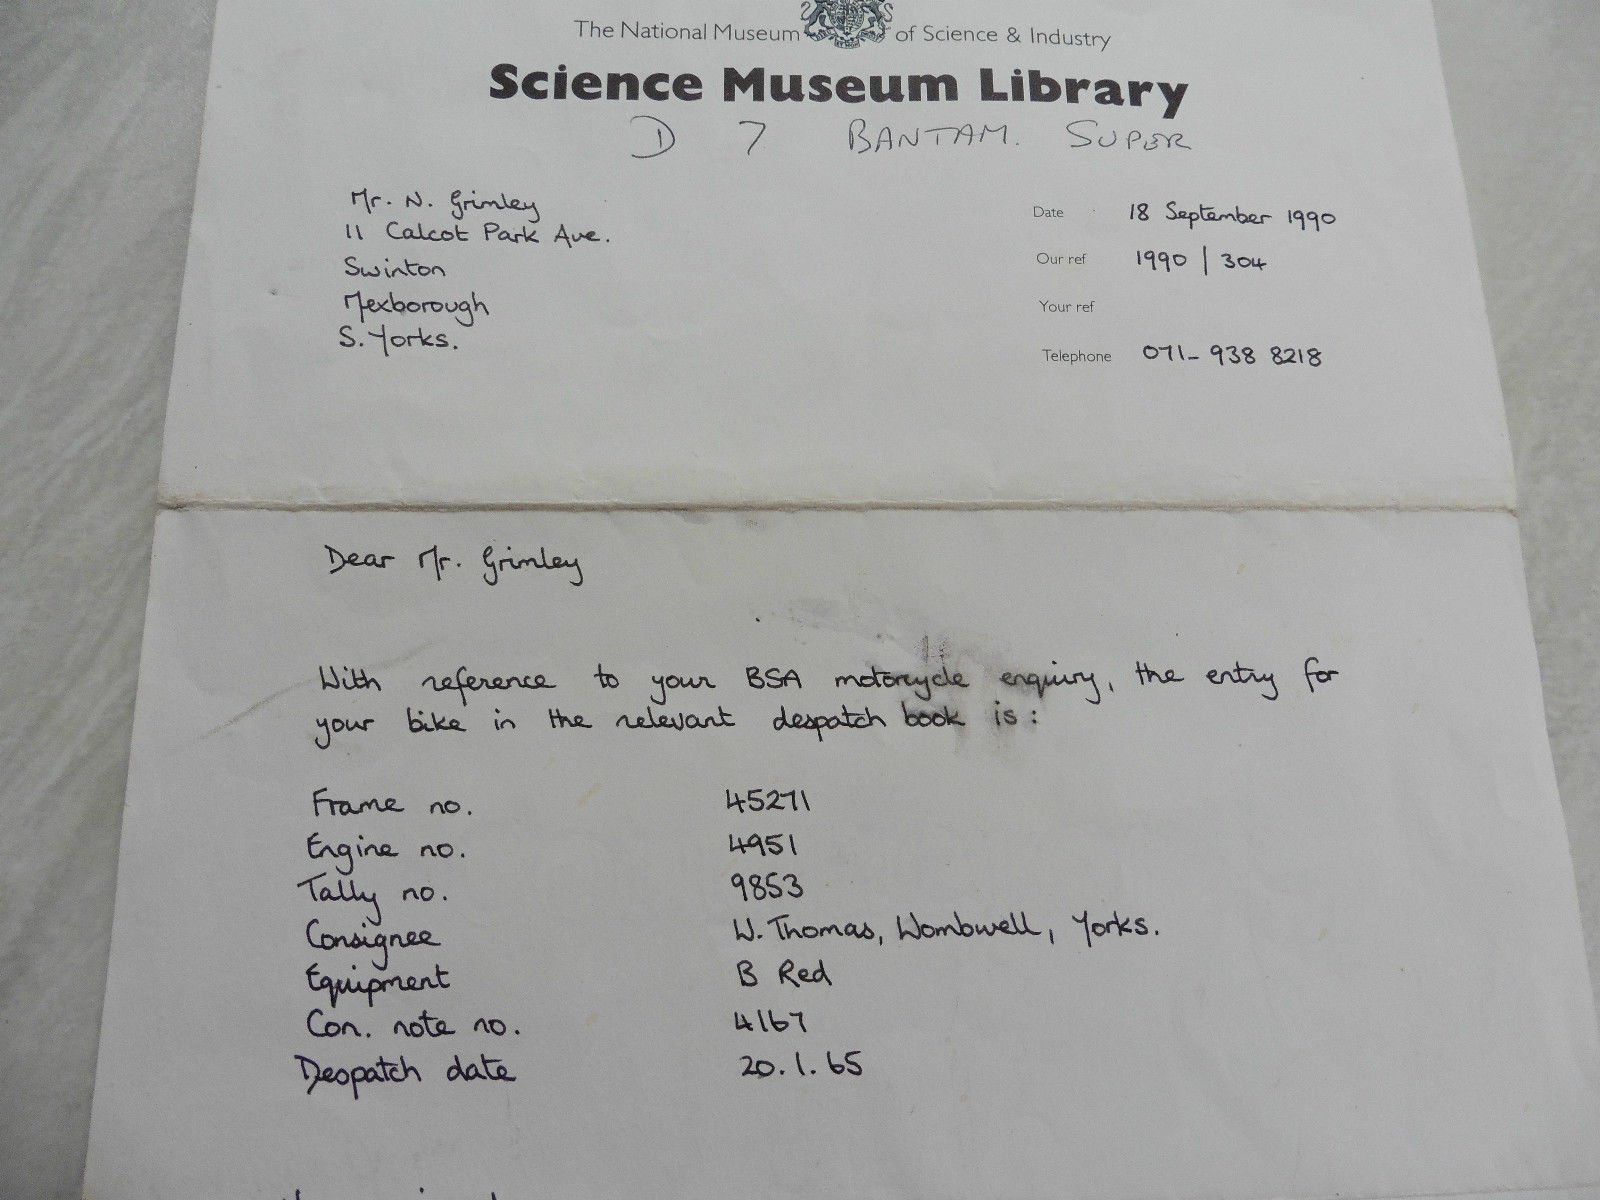 The National Museum of Science & Industry
Science Museum Library
D 7 BANTAM. SUPER
Mr. N. Grimley
11 Calcot Park Ave.
Swinton
Mexborough
S. Yorks.
Date 18 September 1990
Our ref 1990 / 304
Your ref
Telephone 071-938 8218
Dear Mr. Grimley
With reference to your BSA motorcycle enquiry, the entry for
your bike in the relevant despatch book is:
Frame no. 45271
Engine no. 4951
Tally no. 9853
Consignee W. Thomas, Wombwell, Yorks.
Equipment B Red
Con. note no. 4167
Despatch date 20.1.65